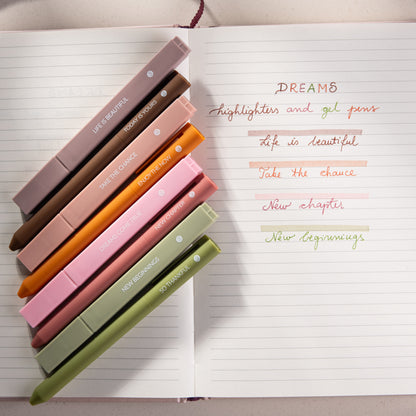 LIFE IS BEAUTIFUL
TODAY IS YOURS
TAKE THE CHANCE
ENJOY THE NOW
DREAMS COME TRUE
NEW CHAPTER
NEW BEGINNINGS
SO THANKFUL
DREAMS
highlighters and gel pens
Life is beautiful
Take the chance
New chapter
New beginnings